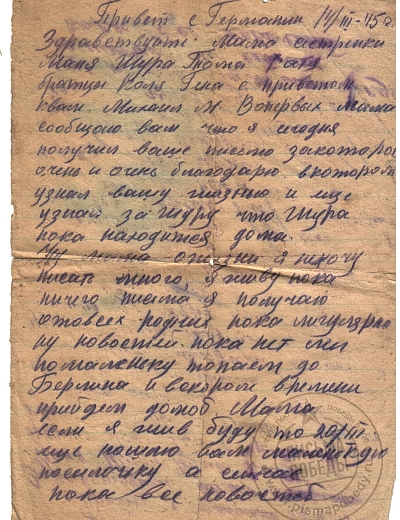 Привет с Германии 14/III-45г
Здравствуйте Мама сестренки
Маня Шура Тома Катя
братцы Коля Гена с приветом
квам Михаил М Вопервых мама
сообщаю вам что я сегодня
получил ваше письмо закоторое
очень и очень благодарю вкотором
узнал вашу жизнью и еще
узнал за Шуру что Шура
пока находится дома.
Ну мама ожизни я нехочу
писать много, я живу пока
ничего письма я получаю
отовсех родних пока
ну новостей пока нет мы
помаленьку топаем до
Берлина и вскором времени
прийдем домой Мама
если я жив буду то 20/III
еще пошлю вам маленькую
посылочку а сичас
пока все новости
ПОБЕДЫ
www.pismapobedy.ru